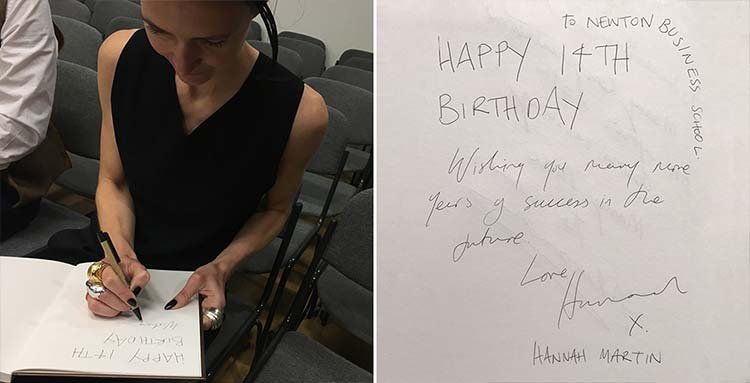 HAPPY 14TH
BIRTHDAY
Wishing
to NEWTON BUSINESS SCHOOL.
HAPPY 14TH
BIRTHDAY
Wishing you many more
years of success in the
future.
Love
Hannah
X.
HANNAH MARTIN